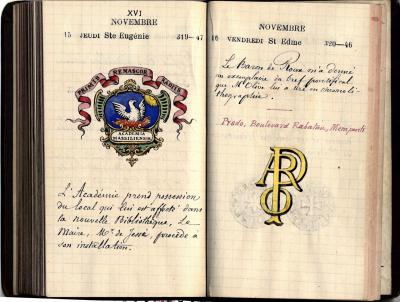 XVI
NOVEMBRE
15 JEUDI Ste Eugénie 319-47
PRIMIS RENASCOR ARMIS
ACADEMIA
MASSILIENSIS
L'Académie prend possession
du local qui lui est affecté dans
la nouvelle Bibliothèque. Le
Maire, Mr de Jessé, procède à
son installation.
NOVEMBRE
16 VENDREDI St Edme 320-46
Le Baron de Roux m'a donné
un exemplaire du bref pontifical
que Mr Olive lui a tiré en chromoli-
thographie.
Prado, Boulevard Rabatau,
APO